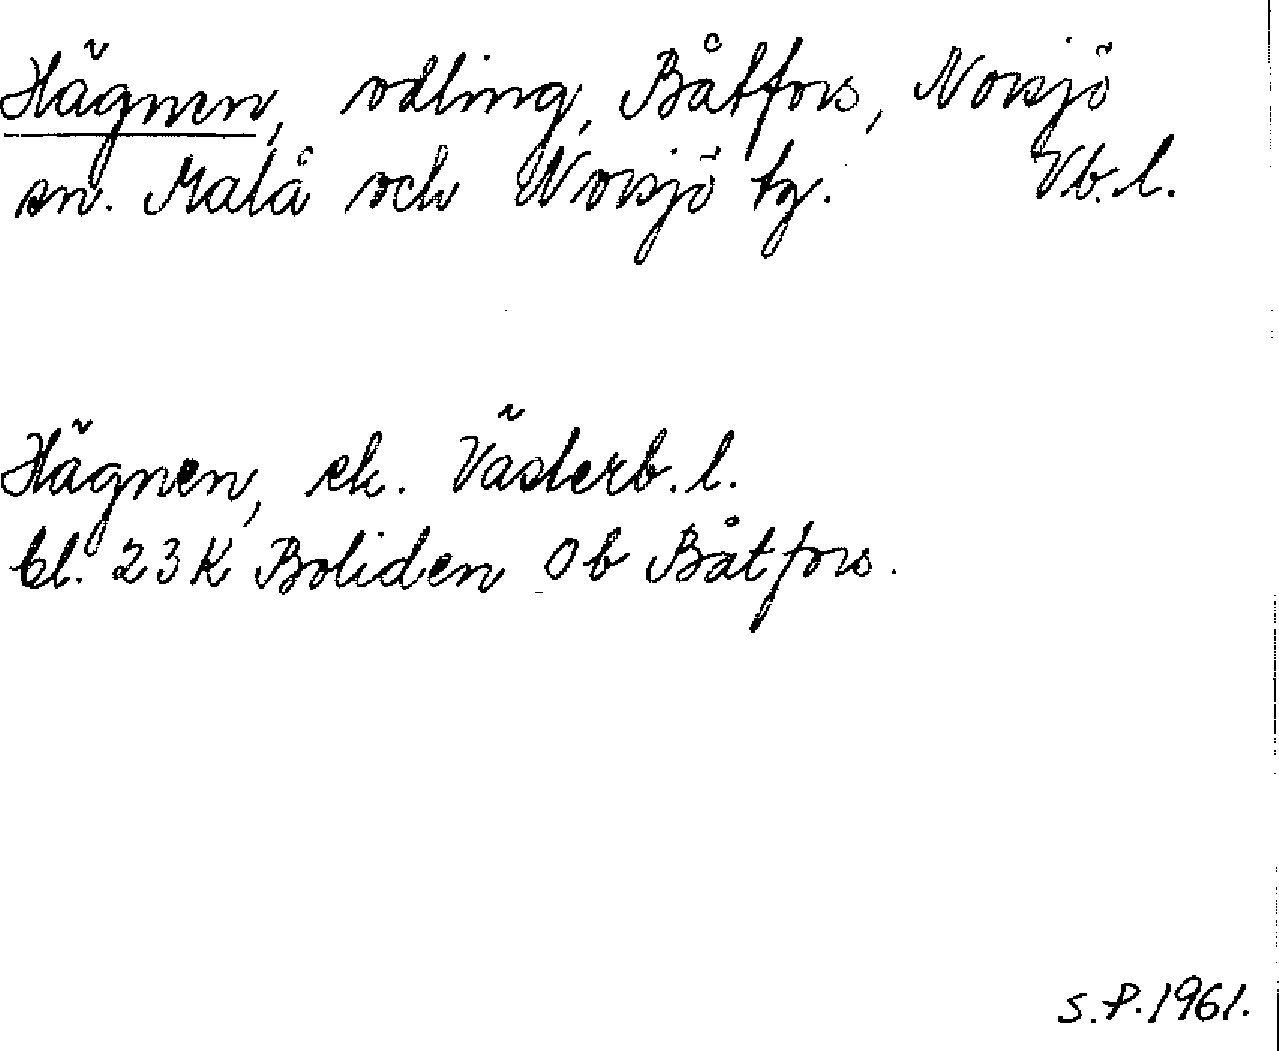 Hägnen, odling, Båtfors, Norsjö
sn. Malå och Norsjö tg. Vb.l.
Hägnen, ek. Västerb.l.
bl. 23 K Boliden 0b Båtfors.
S.P. 1961.